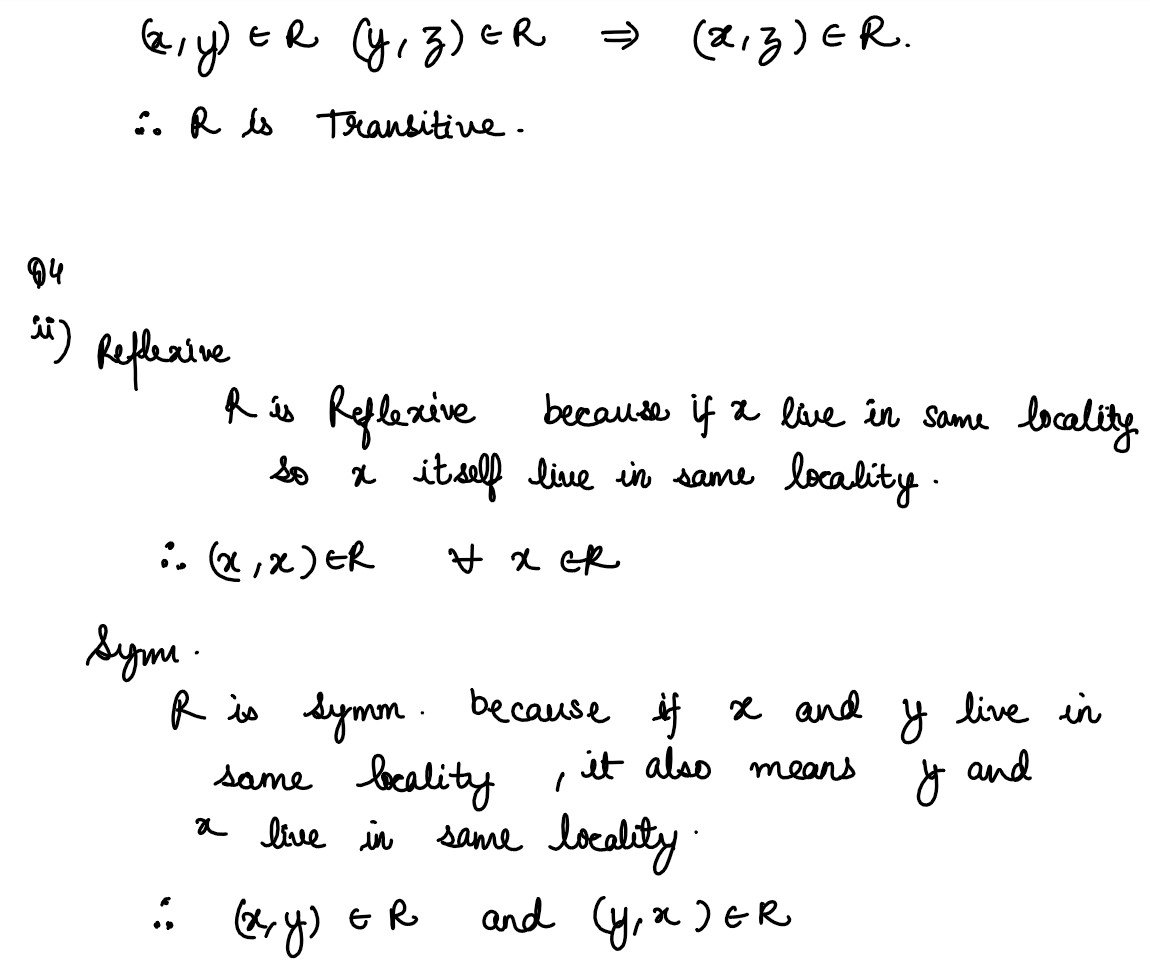 (x, y) ∈ R (y, z) ∈ R ⇒ (x, z) ∈ R.
∴ R is Transitive.
Q4
ii) Reflexive
R is Reflexive because if x live in same locality
so x itself live in same locality.
∴ (x, x) ∈ R ∀ x ∈ R
Symm.
R is symm. because if x and y live in
same locality, it also means y and
x live in same locality.
∴ (x, y) ∈ R and (y, x) ∈ R